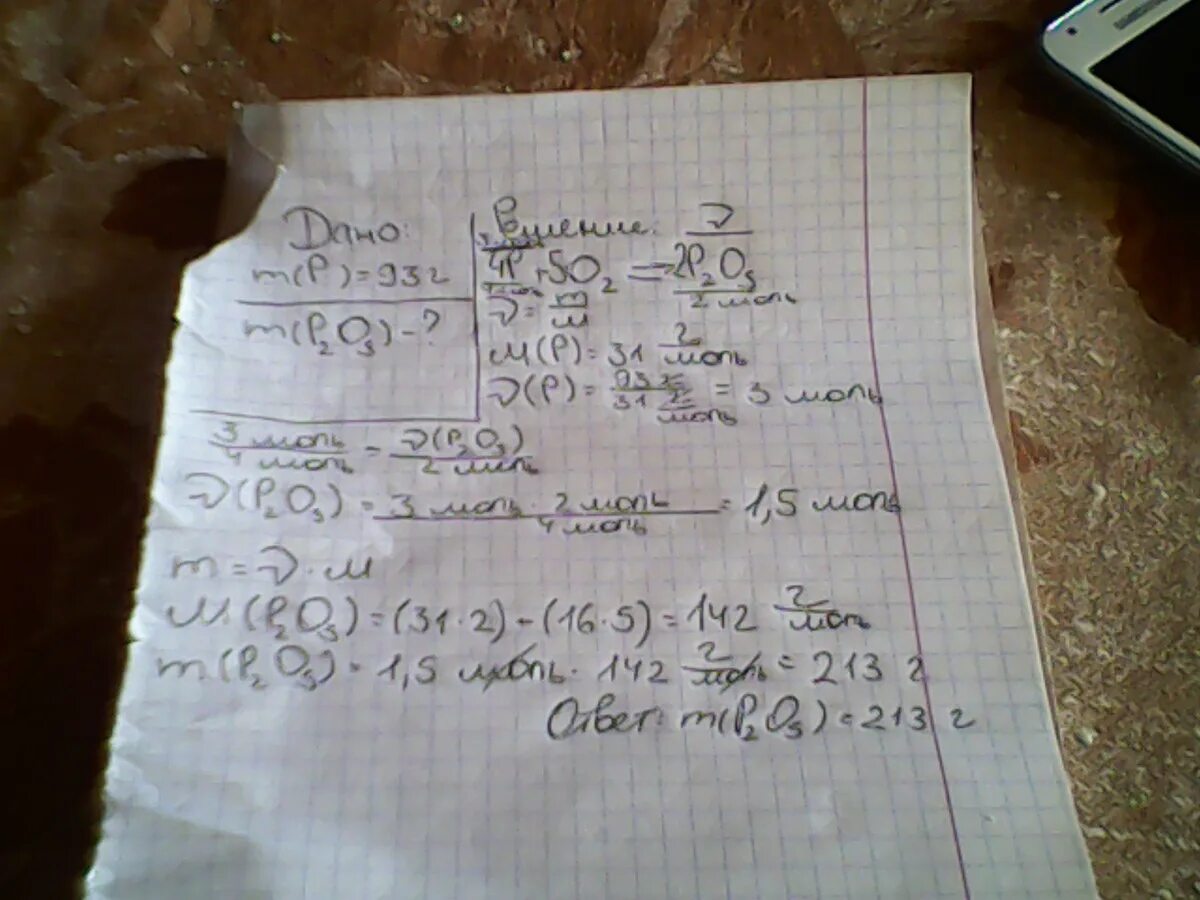 Дано:
m(P) = 93 г
m(P₂O₅) - ?
Решение: ν
4P + 5O₂ ⟹ 2P₂O₅
2 моль
ν = m/M
M(P) = 31 г/моль
ν(P) = 93 г / 31 г/моль = 3 моль
3 моль / 4 моль = ν(P₂O₅) / 2 моль
ν(P₂O₅) = 3 моль · 2 моль / 4 моль = 1,5 моль
m = ν · M
M(P₂O₅) = (31 · 2) - (16 · 5) = 142 г/моль
m(P₂O₅) = 1,5 моль · 142 г/моль = 213 г
Ответ: m(P₂O₅) = 213 г